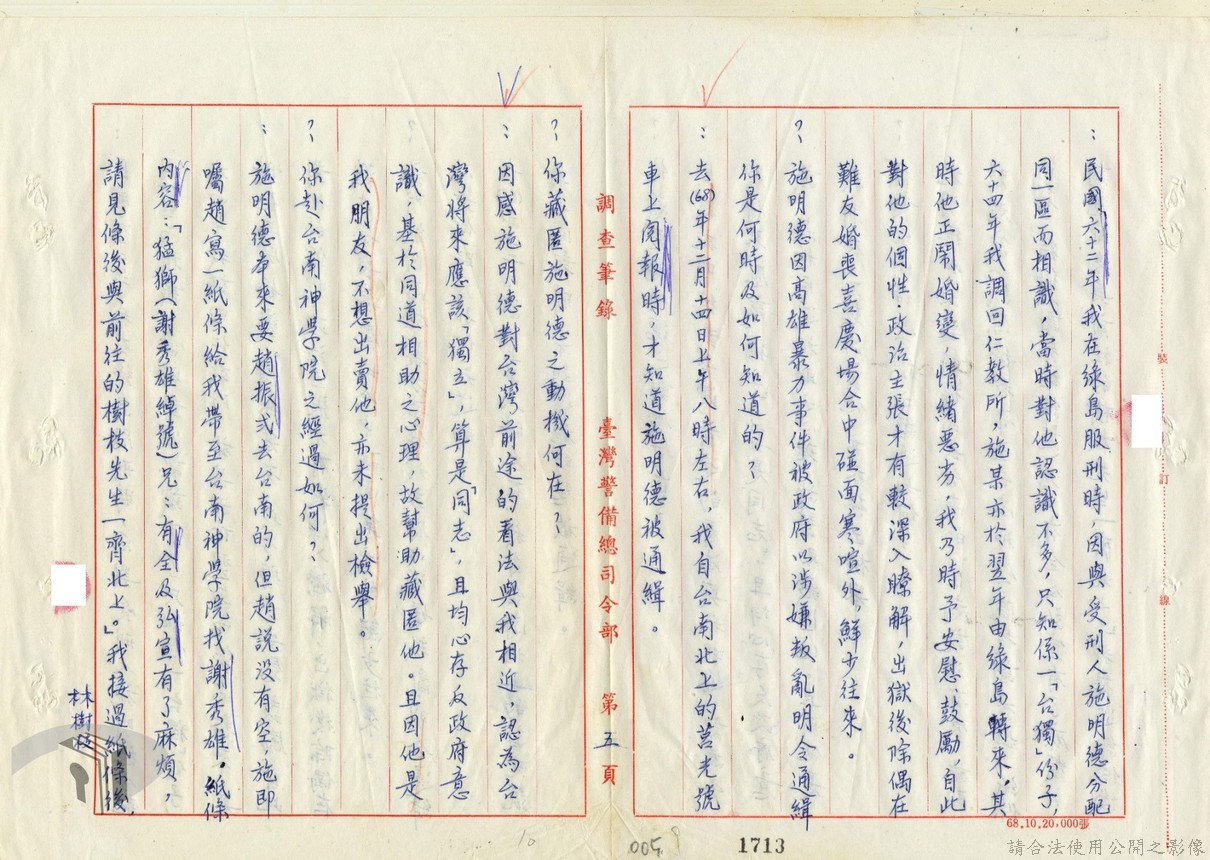 ：民國六十二年我在綠島服刑時，因與受刑人施明德分配
同一區而相識，當時對他認識不多，只知係一「台獨」份子，
六十四年我調回仁教所，施某亦於翌年由綠島轉來，其
時他正鬧婚變，情緒惡劣，我乃時予安慰、鼓勵，自此
對他的個性政治主張才有較深入瞭解，出獄後除偶在
難友婚喪喜慶場合中碰面寒喧外，鮮少往來。
？施明德因高雄暴力事件被政府以涉嫌叛亂明令通緝
你是何時及如何知道的？
：去(68)年十二月十四日上午八時左右，我自台南北上的莒光號
車上閱報時，才知道施明德被通緝。
調查筆錄 臺灣警備總司令部 第五頁
？你藏匿施明德之動機何在？
：因感施明德對台灣前途的看法與我相近，認為台
灣將來應該「獨立」，算是「同志」，且均心存反政府意
識，基於同道相助之心理，故幫助藏匿他。且因他是
我朋友，不想出賣他，亦未提出檢舉。
？你赴台南神學院之經過如何？
：施明德本來要趙振弍去台南的，但趙說没有空，施即
囑趙寫一紙條給我帶至台南神學院找謝秀雄，紙條
內容：「猛獅(謝秀雄綽號)兄：有全及弘宣有了麻煩，
請見條後與前往的樹枝先生一齊北上。」我接過紙條後，
林樹枝
裝
訂
線
68.10.20,000張
1713
005
請合法使用公開之影像